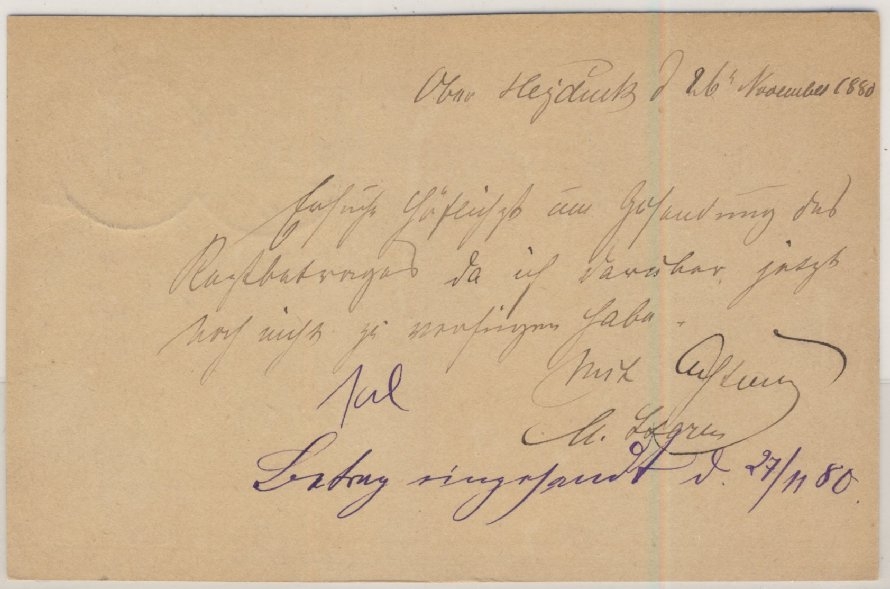 Ober Heiduck d 26t November 1880
Ersuche höflichst um Zusendung des
Restbetrages da ich darüber jetzt
noch nicht zu verfügen habe.
Mit Achtung
M.
Betrag eingesandt d. 27/11 80.